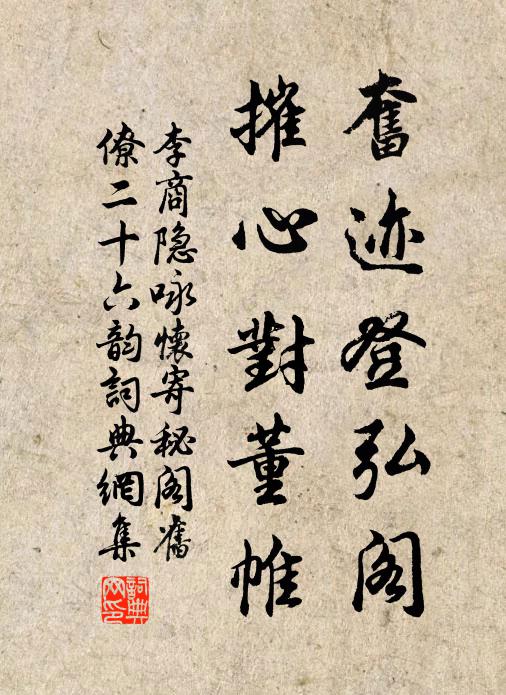 奮迹登弘阁
摧心對董帷
李商隐咏懷寄秘阁舊
僚二十六韵詞典網集
詞典網印